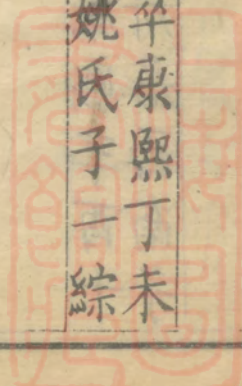 康熙丁未
姚氏子一綜